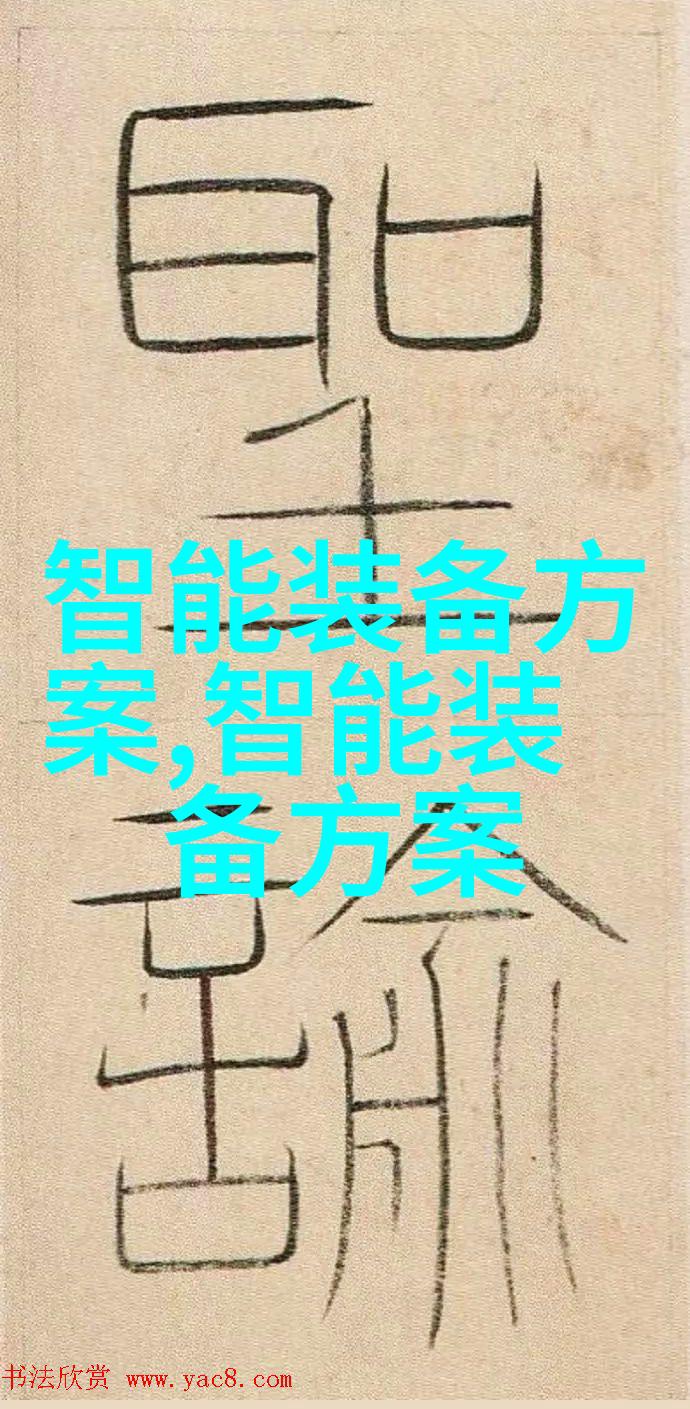 聖
諭
智能装备方
案,智能装
备方案
书法欣赏 www.yac8.com